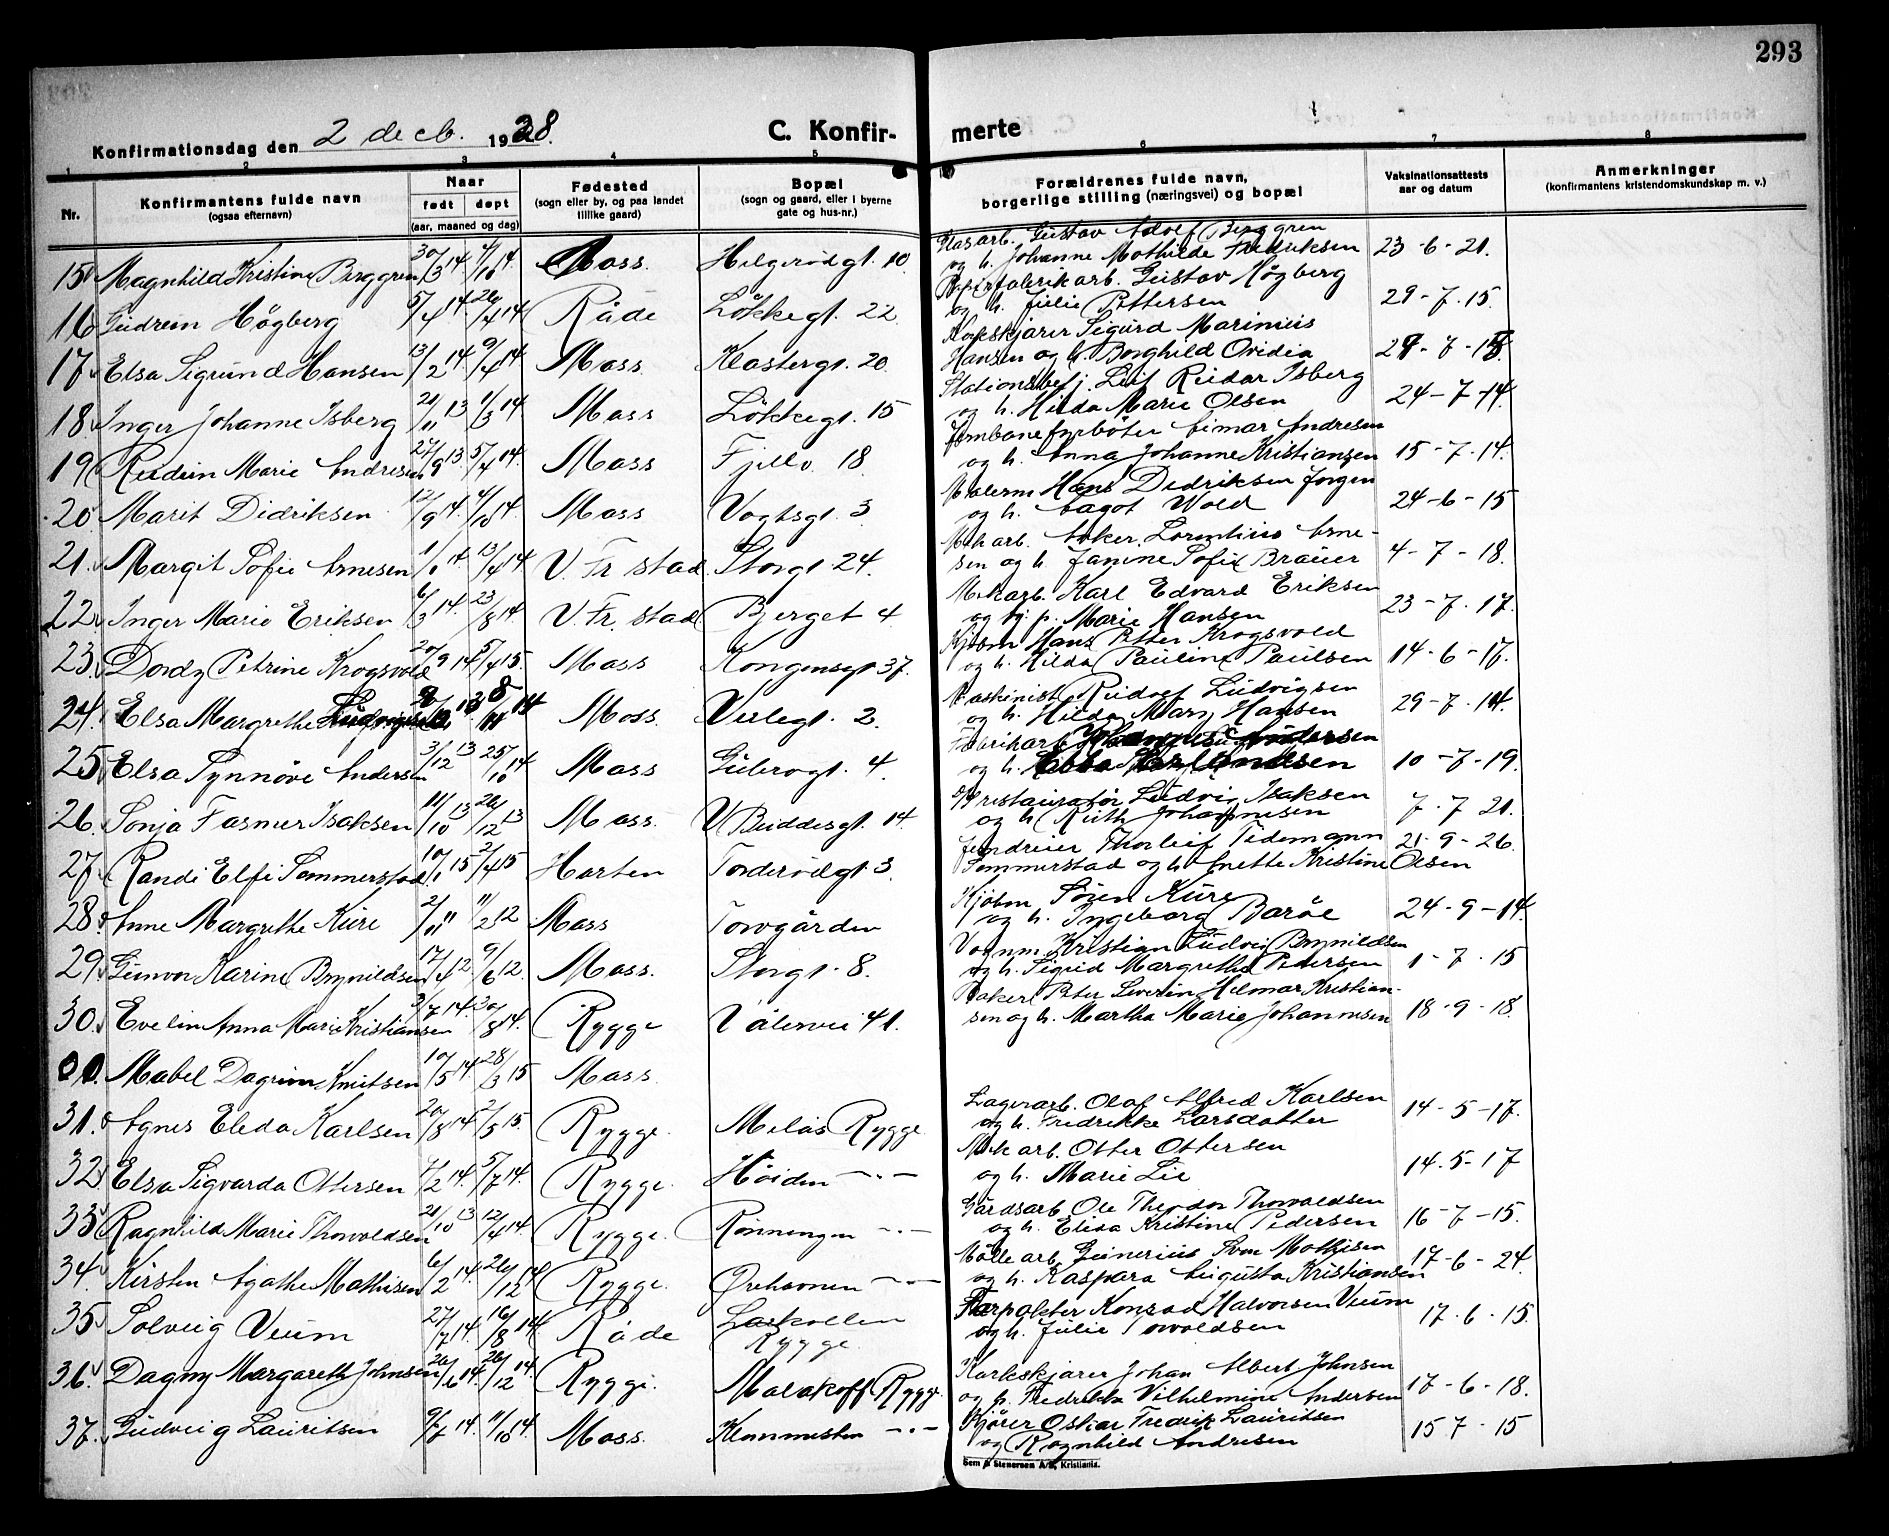 293
Konfirmationsdag den 2 decb. 1928.
C. Konfir-merte
1 2 3 4 5 6 7 8
Nr.
Konfirmantens fulde navn
(ogsaa efternavn)
Naar
født døpt
(aar, maaned og dag)
Fødested
(sogn eller by, og paa landet
tillike gaard)
Bopæl
(sogn og gaard, eller i byerne
gate og hus-nr.)
Forældrenes fulde navn,
borgerlige stilling (næringsvei) og bopæl
Vaksinationsattests
aar og datum
Anmerkninger
(konfirmantens kristendomskundskap m. v.)
15 Magnhild Kristine Berggren 30/3 14 4/10 14. Moss. Helgerødgt. 10. Glasarb. Gustav Adolf Berggren
og h. Johanne Mathilde Fredriksen 23-6-21.
16 Gudrun Høgberg 5/4 14 26/4 14 Råde Løkkegt. 22 Papirfabrikarb. Gustav Høgberg
og h. Julie Pettersen 29-7.15.
17 Elsa Sigrund Hansen 13/2 14. 9/4 14 Moss Klostergt. 20. Sigurd Marinius
Hansen og h. Borghild Ovidia
18. Inger Johanne Isberg 21/11 13 1/3 14 Moss Løkkegt. 15 Stationsbetj. Leif Reidar Isberg
og h. Hilda Marie Olsen 24-7-14.
19 Reidun Marie Andresen 27/9 13 5/4 14. Moss Fjellv. 18. Jernbanefyrbøter Einar Andresen
og h. Anna Johanne Kristiansen 15-7.14.
20 Marit Didriksen 12/9 14. 4/10 14. Moss Vogtsgt. 3 Malerm Hans Dedriksen Jørgen
og h. Wold 24-6-15
21. Margit Sofie Arnesen 1/1 14. 13/4 14 V. Fr. stad Storgt 24. Mek arb. Lorentius Arne-
sen og h. Janine Sofie Brauer 4-7-18.
22. Inger Marie Eriksen 6/3 14. 23/8 14. V. Fr. stad Bjerget 4 Mek arb. Karl Edvard Eriksen
Marie Hansen 23-7.17.
23. Dordy Petrine Krogsvold 20/9 14 5/4 15. Moss Kongensgt 37. Kjøbm Hans Petter Krogsvold
og h. Hilda Pauline Paulsen 14-6-17.
24. Elsa Margrethe Ludvigsen Moss. Verlegt. 2. Maskinist Reidolf Ludvigsen
og h. Hilda Mary Hansen 29-7.14.
25 Elsa Synnøve Andersen 3/12 13 25/10 14 Moss Gudesgt. 4. Fabrikarb. Andersen
og h. Ebba 10-7-19.
26. Sonja Fasmer Isaksen 11/10 13 26/12 13 Moss. V Buddesgt. 14. Ludvig Isaksen
og h Ruth Johannesen 7.7 21.
27. Randi Elfi Sommerstad 10/1 15 2/4 15 Horten Torderødgt 3. Thorleif Tidemann
Sommerstad og h Anette Kristine Olsen 21-9-26.
28. Anne Margrethe Kure 2/11 11/2 12 Moss Torvgården Kjøbm Søren Kure
og h. Ingeborg Barøe 24-9-14.
29. Gunvor Karine Brynildsen 17/4 12. 9/6 12. Moss. Storgt. 8. Vognm. Kristian Ludvig Brynildsen
og h. Sigrid Margrethe Pedersen 1-7.15
30. Evelin Anna Marie Kristiansen 3/7 14. 30/8 14. Rygge Vålervei 41. Baker Peter Severin Helmar Kristian-
sen og h. Martha Marie Johannesen 18-9-18.
00. Mabel Dagrun Knutsen 10/5 14 28/3 15 Moss
31. Agnes Eleda Karlsen 20/8 14 2/5 15. Rygge Meløs Rygge. Lagerarb. Olaf Alfred Karlsen
og h. Fredrikke Larsdatter 14-5-17.
32 Elsa Sigvarda Ottersen 4/2 14. 5/7 14. Rygge. Høiden -"- Mek arb. Otter Ottersen
og h. Marie Lie 14.5-17
33 Ragnhild Marie Thorvaldsen 21/10 13 12/4 14. Rygge. Rønningen -"- Gårdsarb Ole Theodor Thorvaldsen
og h. Elida Kristine Pedersen 16-7-15.
34. Kirsten Agathe Mathisen 6/2 14. 26/12 14 Rygge. Ørehavnen -"- Mølle arb. Gunerius Sven Mathisen
og h. Kaspara Augusta Kristiansen 17-6-24.
35. Solveig Veum 27/7 14. 16/8 14 Råde Larkollen
Rygge. Forpakter Konrad Halvorsen Veum
og h. Julie Torvaldsen 17.6.15.
36. Dagny Margareth Johnsen 26/6 14. 26/12 14. Rygge. Malakoff Rygge. Korkskjærer Johan Albert Johnsen
og h. Fredrikke Vilhelmine Andersen 17-6-18.
37. Gudveig Lauritsen 9/7 14. 11/10 14. Moss. Klommesten -"- Kjører Oskar Fredrik Lauritsen
og Ragnhild Andresen 15 7-15
Sem & Stenersen A/S, Kristiania.